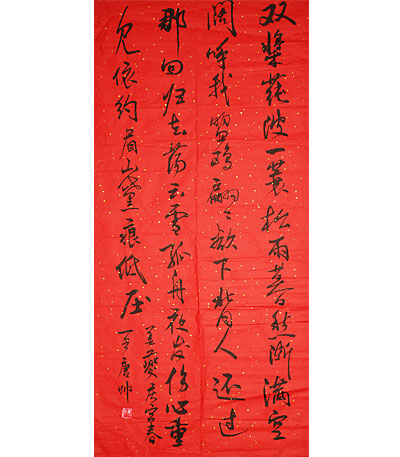 双桨莼波一蓑松雨暮愁渐满空
阔呼我盟鸥翩〻欲下背人还过
那回归去荡云雪孤舟夜发伤心重
见依约眉山黛痕低压
姜夔庆宫春
唐帅